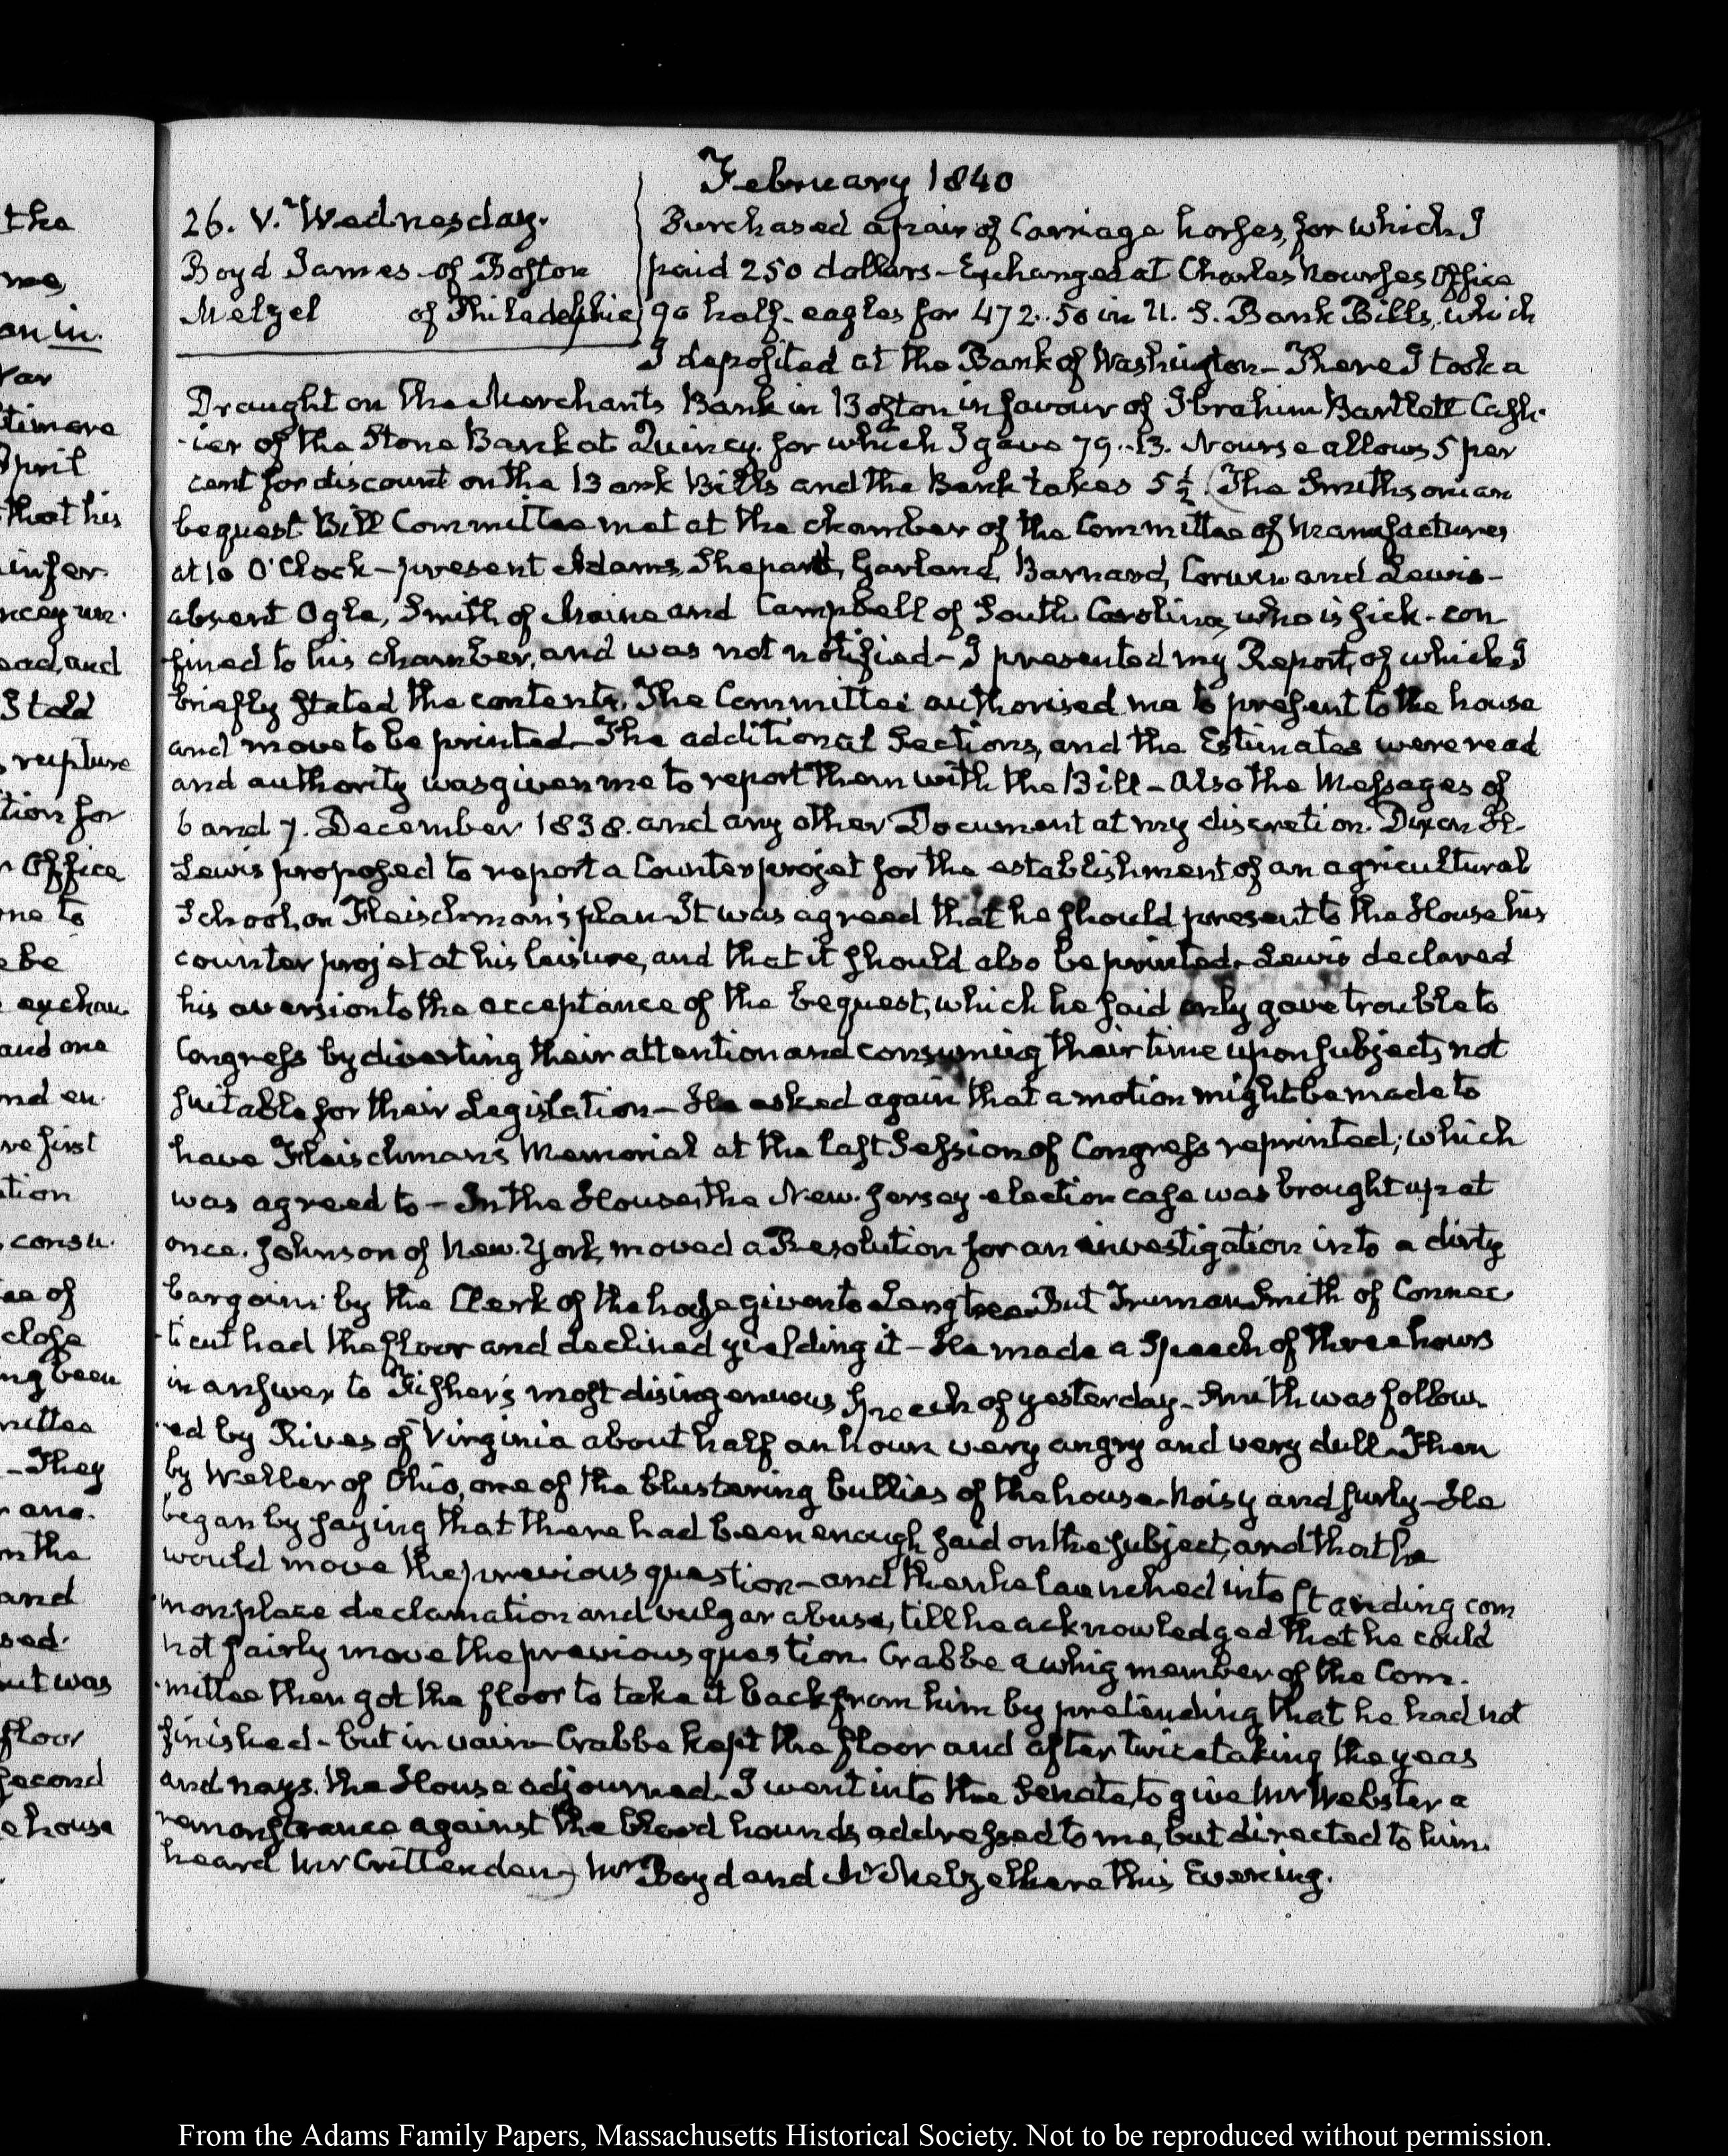 February 1840
26. V. Wednesday.
Boyd James - of Boston
Metzel of Philadelphia
Purchased a pair of Carriage horses, for which I
paid 250 dollars - Exchanged at Charles Nourse's Office
90 half-eagles for 472..50 in U. S. Bank Bills, which
I deposited at the Bank of Washington - There I took a
Draught on the Merchants Bank in Boston in favour of Ibrahim Bartlett Cash-
-ier of the Stone Bank at Quincy. for which I gave 79..13. Nourse allows 5 per
cent for discount on the Bank Bills and the Bank takes 5 1/2. (The Smithsonian
bequest Bill Committee met at the chamber of the Committee of Manufactures
at 10 O'Clock - present Adams, Shepard, Garland, Barnard, Corwin and Lewis -
absent Ogle, Smith of Maine and Campbell of South Carolina, who is sick - con
fined to his chamber, and was not notified - I presented my Report, of which I
briefly stated the contents. The Committee authorised me to present to the house
and move to be printed - The additional Sections, and the Estimates were read
and authority was given me to report them with the Bill - also the Messages of
6 and 7. December 1838. and any other Document at my discretion. Dixon H.
Lewis proposed to report a Counter projet for the establishment of an agricultural
School, on Fleischman's plan. It was agreed that he should present to the House his
counter projet at his leisure, and that it should also be printed. Lewis declared
his aversion to the acceptance of the bequest, which he said only gave trouble to
Congress by diverting their attention and consuming their time upon subjects not
suitable for their Legislation - He asked again that a motion might be made to
have Fleischman's Memorial at the last Session of Congress reprinted; which
was agreed to - In the House, the New-Jersey election case was brought up at
once. Johnson of New-York, moved a Resolution for an investigation into a dirty
bargain by the Clerk of the house given to Langtree. But Truman Smith of Connec
-ticut had the floor and declined yielding it - He made a Speech of three hours
in answer to Fisher's most disingenuous Speech of yesterday - Smith was follow-
-ed by Rives of Virginia about half an hour very angry and very dull. Then
by Weller of Ohio, one of the blustering bullies of the house - Noisy and surly - He
began by saying that there had been enough said on the subject, and that he
would move the previous question - and then he launched into standing com
-monplace declamation and vulgar abuse, till he acknowledged that he could
not fairly move the previous question. Crabbe a whig member of the Com-
-mittee then got the floor to take it back from him by pretending that he had not
finished - but in vain - Crabbe kept the floor and after twice taking the yeas
and nays. the House adjourned. I went into the Senate, to give Mr Webster a
remonstrance against the blood hounds, addressed to me, but directed to him.
heard Mr Crittenden) Mr Boyd and Mr Metzel here this Evening.
the
me,
on in.
Var
timore
April
that his
infer
ead, and
I told
rupture
tion for
r Office
me to
e be
exchan-
and one
nd en-
re first
tion
consu-
ee of
close
ng been
mittee
- They
on the
and
sed.
but was
floor
second
e house
From the Adams Family Papers, Massachusetts Historical Society. Not to be reproduced without permission.